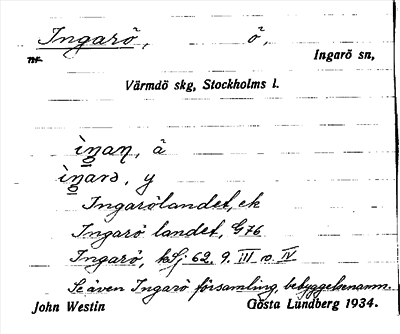 Ingarö, ö,
Ingarö sn,
Värmdö skg, Stockholms l.
ìŋan, å
ìŋarə, y
Ingarölandet, ek
Ingarö landet, G76
Ingarö, kSj: 62. 9. III o. IV
Se även Ingarö församling, bebyggelsenamn.
John Westin Gösta Lundberg 1934.